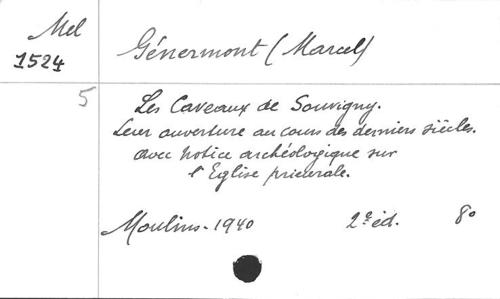 Mel
1524
Génermont (Marcel)
5
Les Caveaux de Souvigny.
Leur ouverture au cours des derniers siècles.
avec notice archéologique sur
l'Eglise prieurale.
Moulins - 1940 2e éd. 8o